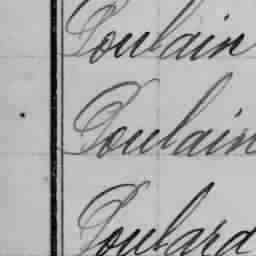 Poulain
Poulain
Poulard